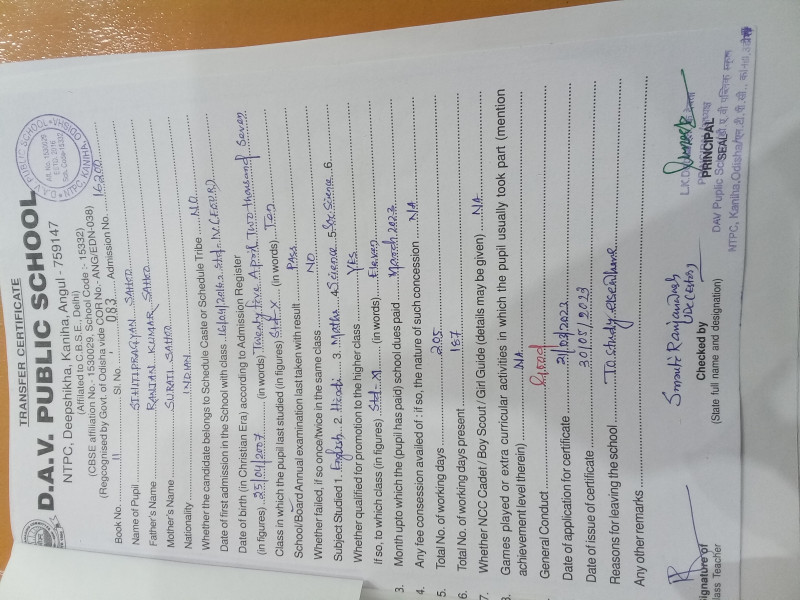 TRANSFER CERTIFICATE
D.A.V. PUBLIC SCHOOL
NTPC, Deepshikha, Kaniha, Angul - 759147
(Affiliated to C.B.S.E. Delhi)
(CBSE affiliation No:- 1530029, School Code :- 15332)
(Regcognised by Govt. of Odisha vide COR No:- ANG/EDN-038)
Book No. 11 Sl. No. 083 Admission No. 16200
Name of Pupil STHITIPRAGYAN SAHOO
Father's Name RANJAN KUMAR SAHOO
Mother's Name SUBATI SAHOO
Nationality INDIAN
Whether the candidate belongs to Schedule Caste or Schedule Tribe NO
Date of first admission in the School with class
Date of birth (in Christian Era) according to Admission Register
(in figures) 25/04/2007 (in words) Twenty five April Two thousand Seven
Class in which the pupil last studied (in figures) Std-X (in words) Ten
School/Board Annual examination last taken with result PASS
Whether failed, if so once/twice in the same class NO
Subject Studied 1. English 2. Hindi 3. Maths 4. Science 5. Soc. Science 6
Whether qualified for promotion to the higher class YES
If so, to which class (in figures) Std-XI (in words) Eleven
3. Month upto which the (pupil has paid) school dues paid March 2023
4. Any fee consession availed of : if so, the nature of such concession NA
5. Total No. of working days 205
6. Total No. of working days present 187
7. Whether NCC Cadet / Boy Scout / Girl Guide (details may be given) NA
8. Games played or extra curricular activities in which the pupil usually took part (mention
achievement level therein) NA
General Conduct Good
Date of application for certificate 21/03/2023
Date of issue of certificate 30/05/2023
Reasons for leaving the school To study elsewhere
Any other remarks
Signature of
Class Teacher
Checked by
(State full name and designation)
PRINCIPAL
SEAL
DAV Puplic School
NTPC, Kaniha, Odisha